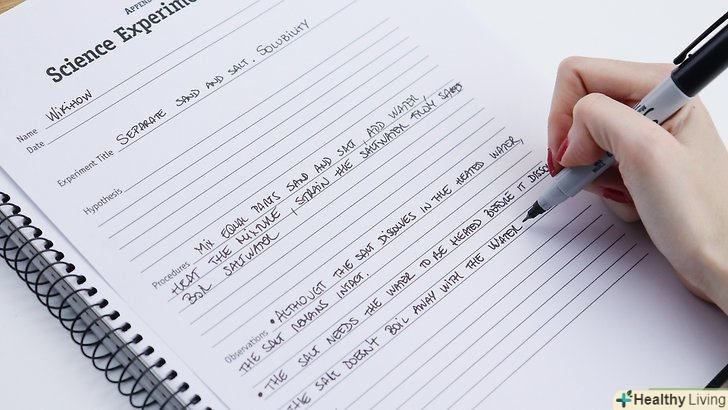 APPEN
Science Experime
Name WIKIHOW
Date
Experiment Title SEPARATE SAND AND SALT. SOLUBILITY
Hypothesis
Procedures MIX EQUAL PARTS SAND AND SALT, ADD WATER,
HEAT THE MIXTURE, STRAIN THE SALTWATER FROM
BOIL SALTWATER
Observations • ALTHOUGT THE SALT DISOLVES IN THE HEATED WATER,
THE SALT REMAINS INTACT.
• THE SALT NEEDS THE WATER TO BE HEATED BEFORE IT DISSO
THE SALT DOESN'T BOIL AWAY WITH THE WATER
Healthy Living